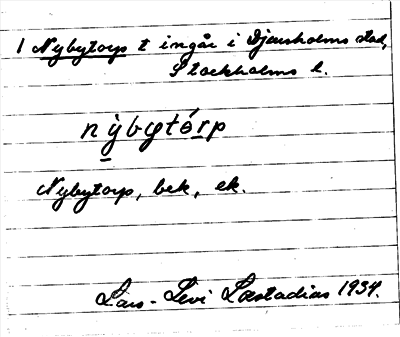 1 Nybytorp t ingår i Djursholms stad,
Stockholms l.
nỳbytórp
Nybytorp, bek., ek.
Lars-Levi Læstadius 1934.